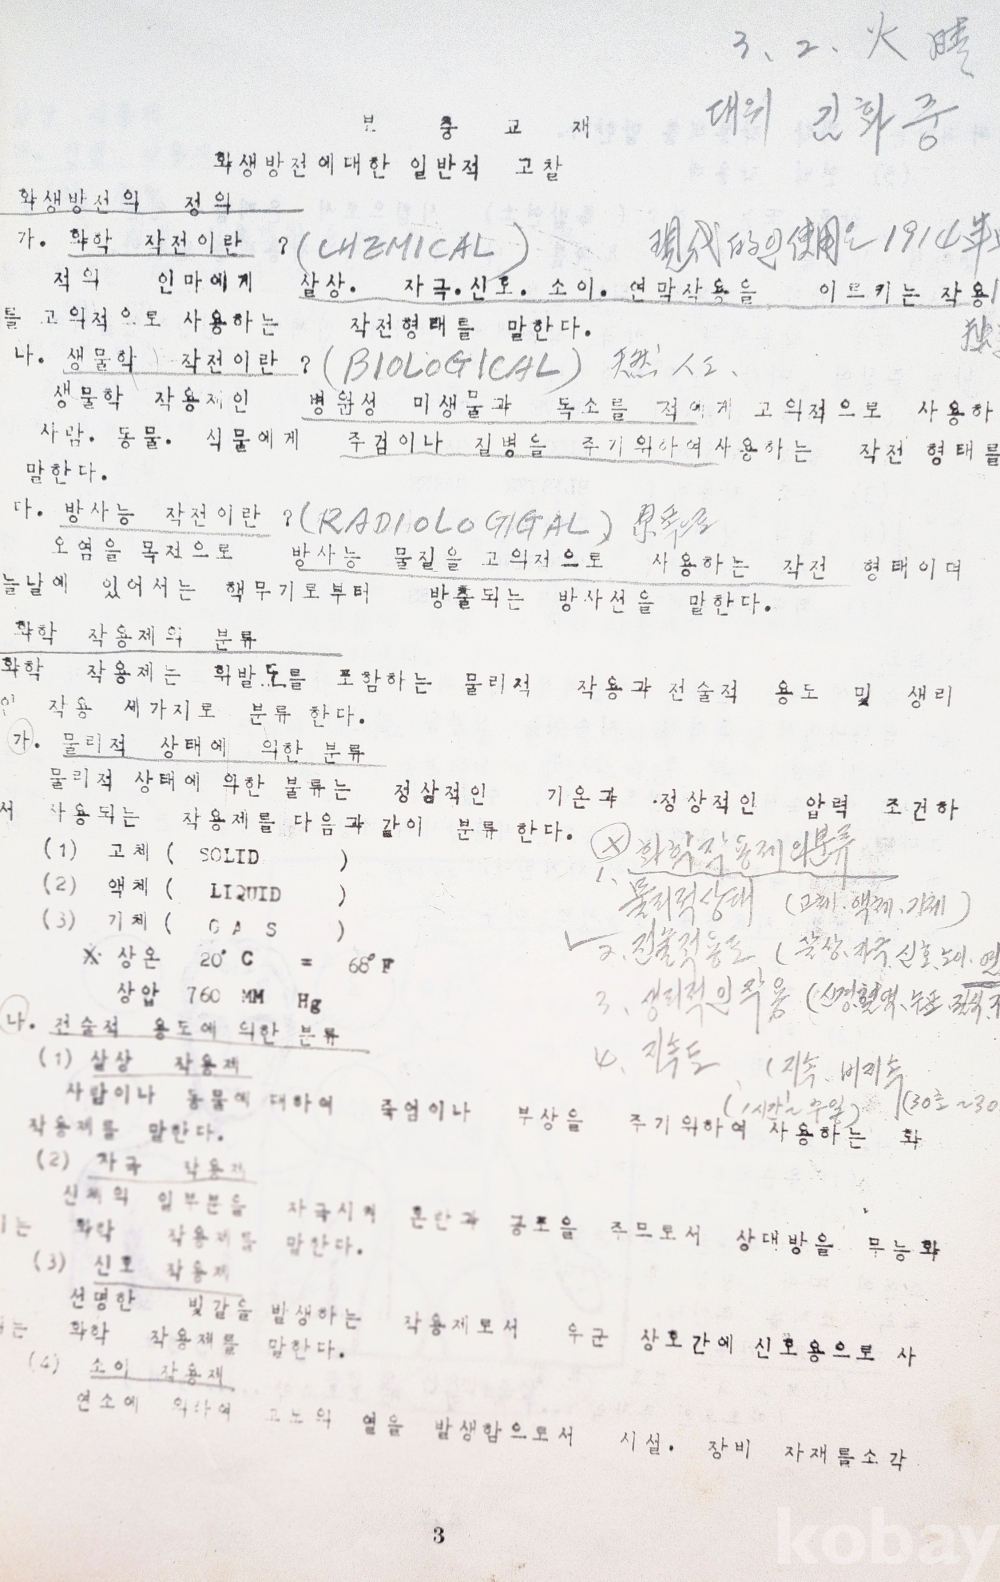 3. 2. 火 晴
대위 김화중
보 충 교 재
화생방전에대한 일반적 고찰
화생방전의 정의
가. 화학 작전이란 ? (CHEMICAL) 現代的인 使用은 1914年
적의 인마에게 살상. 자극.신호. 소이. 연막작용을 이르키는 작용
를 고의적으로 사용하는 작전형태를 말한다.
나. 생물학 작전이란 ? (BIOLOGICAL) 天然 人工.
생물학 작용제인 병원성 미생물과 독소를 적에게 고의적으로 사용하
사람. 동물. 식물에게 주검이나 질병을 주기위하여사용하는 작전 형태를
말한다.
다. 방사능 작전이란 ? (RADIOLOGIGAL)
오염을 목적으로 방사능 물질을 고의저으로 사용하는 작전 형태이며
늘날에 있어서는 핵무기로부터 방출되는 방사선을 말한다.
화학 작용제의 분류
화학 작용제는 휘발도를 포함하는 물리적 작용과전술적 용도 및 생리
인 작용 세가지로 분류 한다.
가. 물리적 상태에 의한 분류
물리적 상태에 의한 불류는 정상적인 기온과 .정상적인 압력 조건하
서 사용되는 작용제를다음과같이 분류 한다.
(1) 고체 ( SOLID )
(2) 액체 ( LIQUID )
(3) 기체 ( G A S )
X 상온 20° C = 68°F
상압 760 MM Hg
X 화학작용제의분류
1. 물리적상태 (고체.액체.기체)
2. 전술적용도 (살상.자극.신호.소이.연
3. 생리적인작용 (신경.혈액.수포.질식.
4. 지속도 (지속. 비지속
(1시간~수일) (30초~30
나. 전술적 용도에 의한 분류
(1) 살상 작용제
사람이나 동물에 대하여 죽엄이나 부상을 주기위하여 사용하는 화
작용제를 말한다.
(2) 자극 작용제
신체의 일부분을 자극시켜 혼란과 공포을 주므로서 상대방을 무능화
는 화학 작용제를 말한다.
(3) 신호 작용제
선명한 빛갈을 발생하는 작용제로서 우군 상호간에 신호용으로 사
는 화학 작용제를 말한다.
(4) 소이 작용제
연소에 의하여 고노의 열을 발생함으로서 시설. 장비 자재를소각
3
kobay